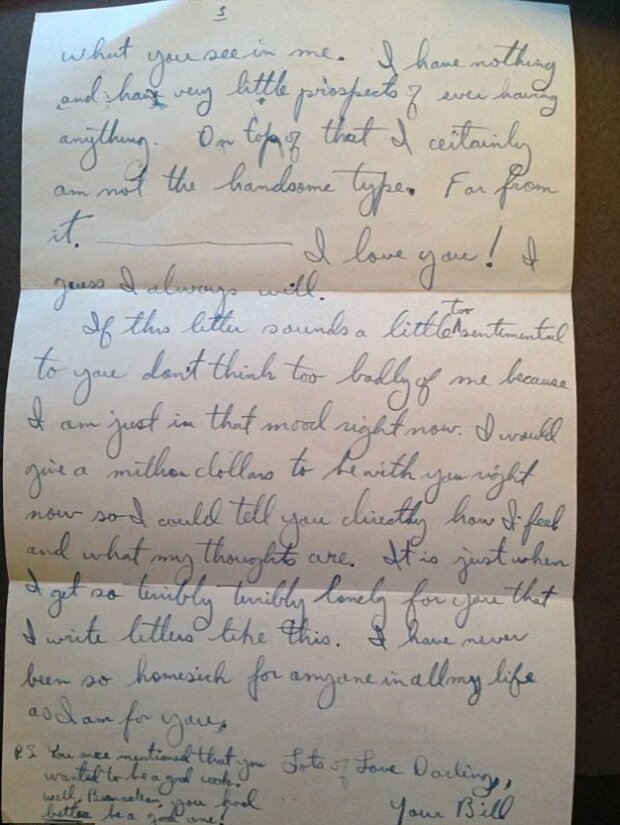 3
what you see in me. I have nothing
and have very little prospects of ever having
anything. On top of that I certainly
am not the handsome type. Far from
it. ——— I love you! I
guess I always will.
If this letter sounds a little too sentimental
to you don't think too badly of me because
I am just in that mood right now. I would
give a million dollars to be with you right
now so I could tell you directly how I feel
and what my thoughts are. It is just when
I get so terribly terribly lonely for you that
I write letters like this. I have never
been so homesick for anyone in all my life
as I am for you.
Lots of Love Darling,
Your Bill
P.S. You once mentioned that you
wanted to be a good cook.
well, you had
better be a good one!